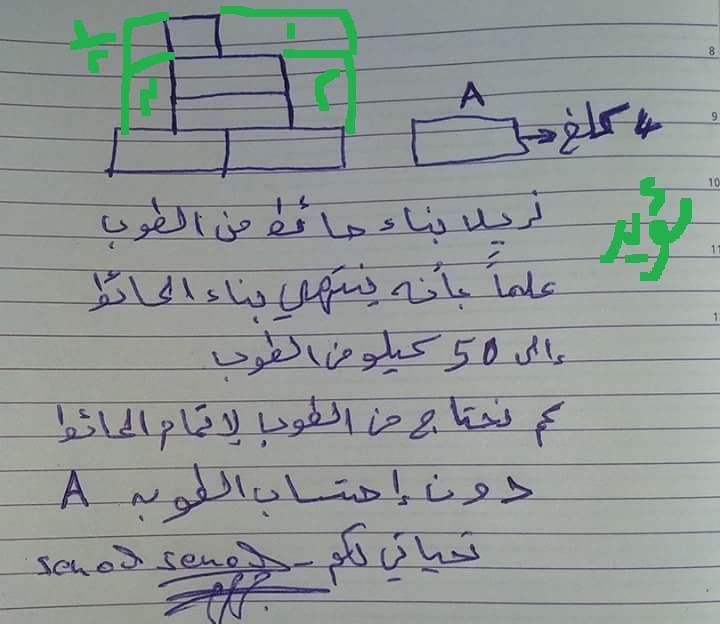 A
4 كلغ
نريد بناء حائط من الطوب
علماً بأنه ينتهي بناء الحائط
إلى 50 كيلو من الطوب
كم نحتاج من الطوب لإتمام الحائط
دون إحتساب الطوبه A
تحياتي لكم - senod senod
8
9
10
11
1
1
2
1/2